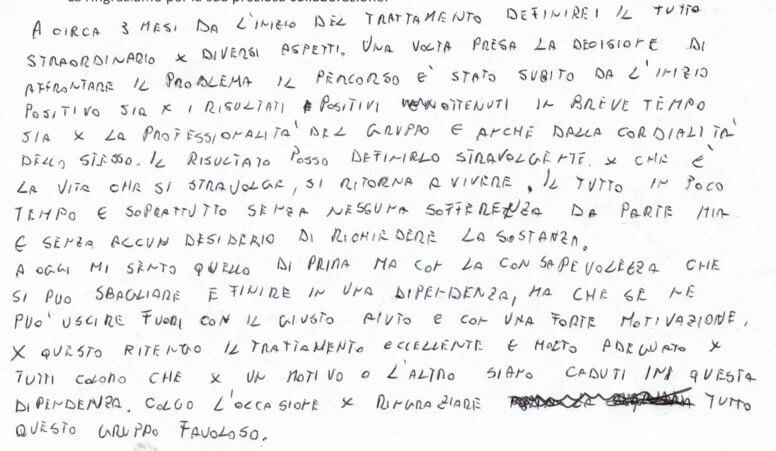 La ringraziamo per la sua preziosa collaborazione.
A CIRCA 3 MESI DA L'INIZIO DEL TRATTAMENTO DEFINIREI IL TUTTO
STRAORDINARIO X DIVERSI ASPETTI. UNA VOLTA PRESA LA DECISIONE DI
AFFRONTARE IL PROBLEMA IL PERCORSO È STATO SUBITO DA L'INIZIO
POSITIVO SIA X I RISULTATI POSITIVI OTTENUTI IN BREVE TEMPO
SIA X LA PROFESSIONALITA' DEL GRUPPO E ANCHE DALLA CORDIALITA'
DELLO STESSO. IL RISULTATO POSSO DEFINIRLO STRAVOLGENTE. X CHE È
LA VITA CHE SI STRAVOLGE, SI RITORNA A VIVERE. IL TUTTO IN POCO
TEMPO E SOPRATTUTTO SENZA NESSUNA SOFFERENZA DA PARTE MIA
E SENZA ALCUN DESIDERIO DI RICHIEDERE LA SOSTANZA.
A OGGI MI SENTO QUELLO DI PRIMA MA CON LA CONSAPEVOLEZZA CHE
SI PUO SBAGLIARE E FINIRE IN UNA DIPENDENZA, MA CHE SE NE
PUO' USCIRE FUORI CON IL GIUSTO AIUTO E CON UNA FORTE MOTIVAZIONE.
X QUESTO RITENGO IL TRATTAMENTO ECCELLENTE E MOLTO ADEGUATO X
TUTTI COLORO CHE X UN MOTIVO O L'ALTRO SIAMO CADUTI IN QUESTA
DIPENDENZA. COLGO L'OCCASIONE X RINGRAZIARE TUTTO
QUESTO GRUPPO FAVOLOSO.